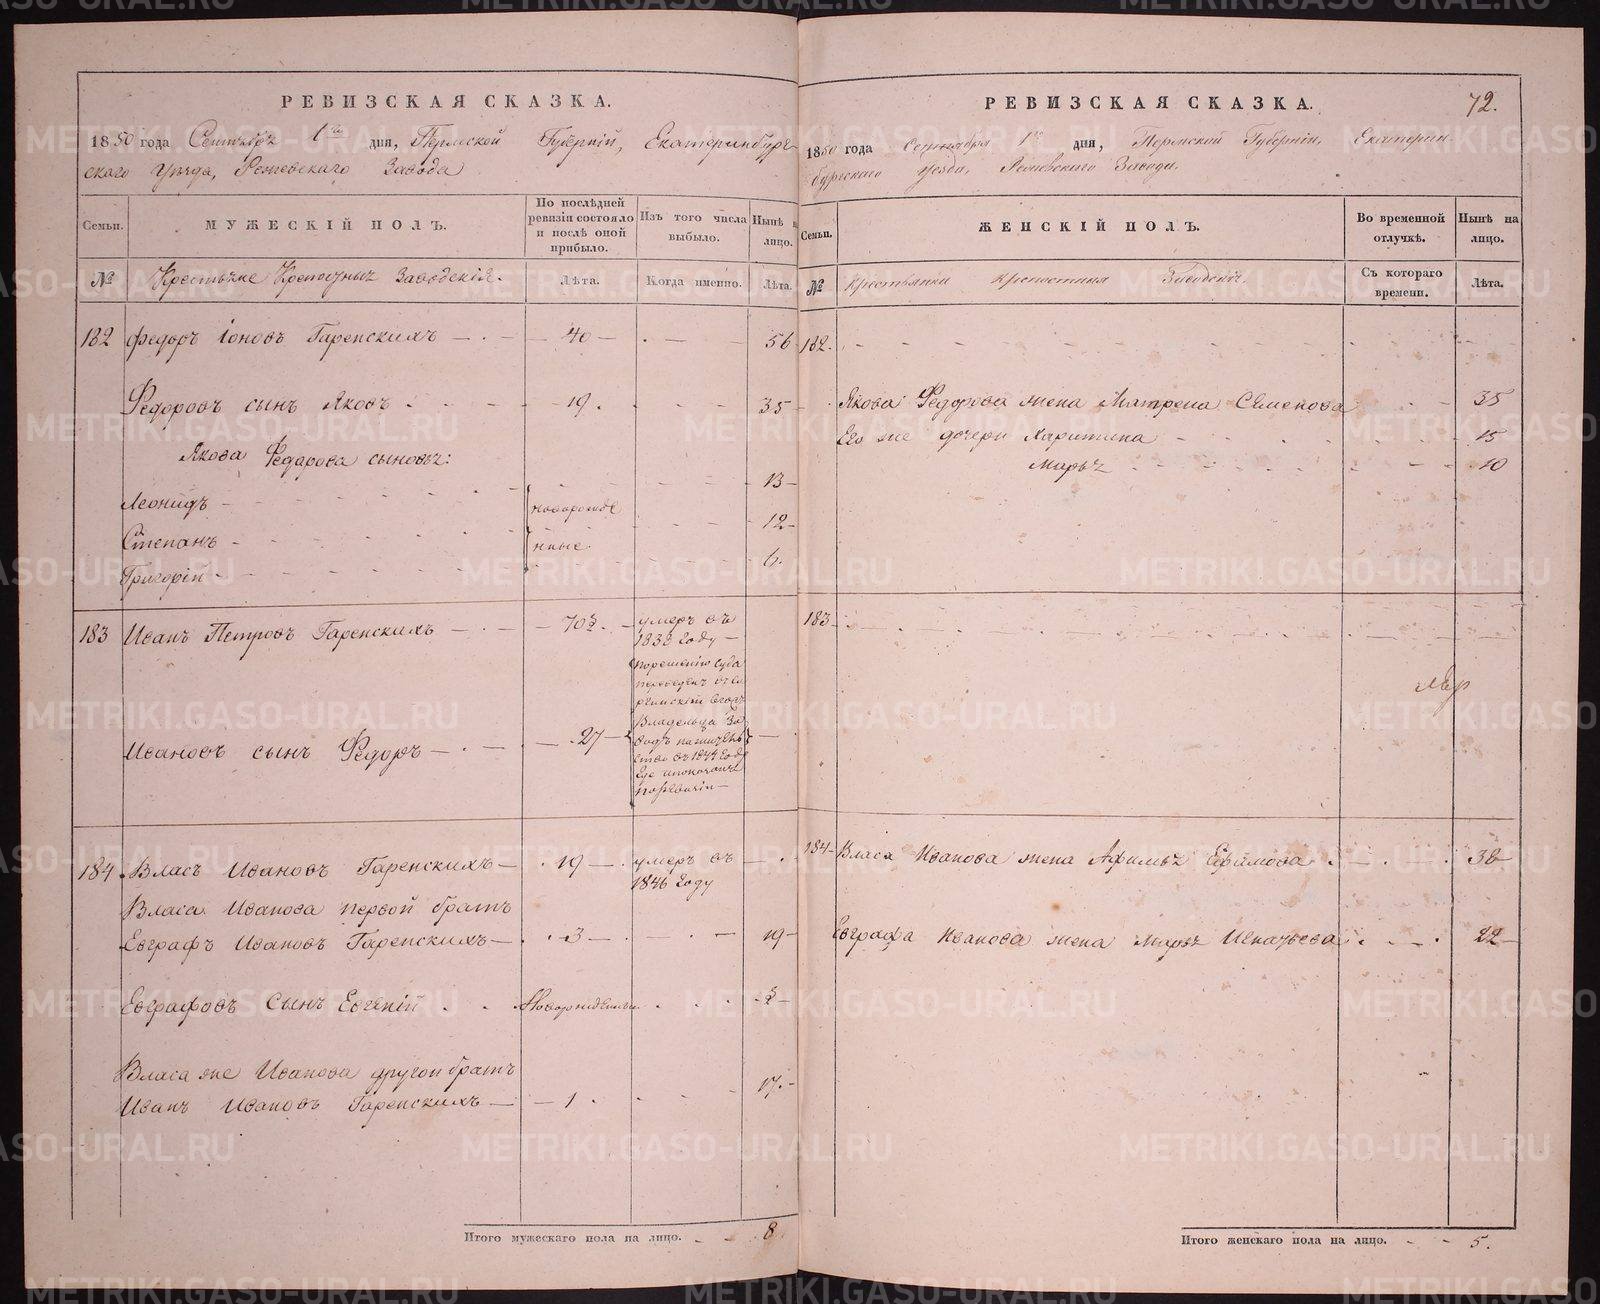 РЕВИЗСКАЯ СКАЗКА.
1850 года Сентября 1го дня, Пермской Губерніи, Екатеринбург-
скаго уѣзда, Режевскаго Завода
Семьи.
МУЖЕСКІЙ ПОЛЪ.
По послѣдней ревизіи состояло и послѣ оной прибыло.
Изъ того числа выбыло.
Нынѣ на лицо.
№
Крестьяне Крепостные Заводскія.
Лѣта.
Когда именно.
Лѣта.
182 Федоръ Іоновъ Гаренскихъ 40 56
Федоровъ сынъ Яковъ 19. 35
Якова Федорова сыновья:
Леонидъ новорожде 13
Степанъ нные 12
Григорій 6.
183 Иванъ Петровъ Гаренскихъ 70½ умеръ въ
1838 году
по решенію суда
переведенъ
Владельца За
водъ
въ 1844 году
Ивановъ сынъ Федоръ 27
184 Власъ Ивановъ Гаренскихъ 19 умеръ въ
1846 году
Власа Иванова первой братъ
Евграфъ Ивановъ Гаренскихъ 3 19
Евграфовъ сынъ Евгеній Новорожденный ½
Власа же Иванова другой братъ
Иванъ Ивановъ Гаренскихъ 1 17.
Итого мужескаго пола на лицо. 8.
РЕВИЗСКАЯ СКАЗКА.
72.
1850 года Сентября 1го дня, Пермской Губерніи, Екатерин
бургскаго уезда, Режевскаго Завода.
Семьи.
ЖЕНСКІЙ ПОЛЪ.
Во временной отлучкѣ.
Нынѣ на лицо.
№
Крестьянки крепостныя Заводскія.
Съ котораго времени.
Лѣта.
182.
Якова Федорова жена Матрена Семенова 35
Его же дочери Харитина 15
Марья 10
183
184 Власа Иванова жена Афимья Ефимова 38
Евграфа Иванова жена Марья Игнатьева 22
Итого женскаго пола на лицо. 5.
METRIKI.GASO-URAL.RU